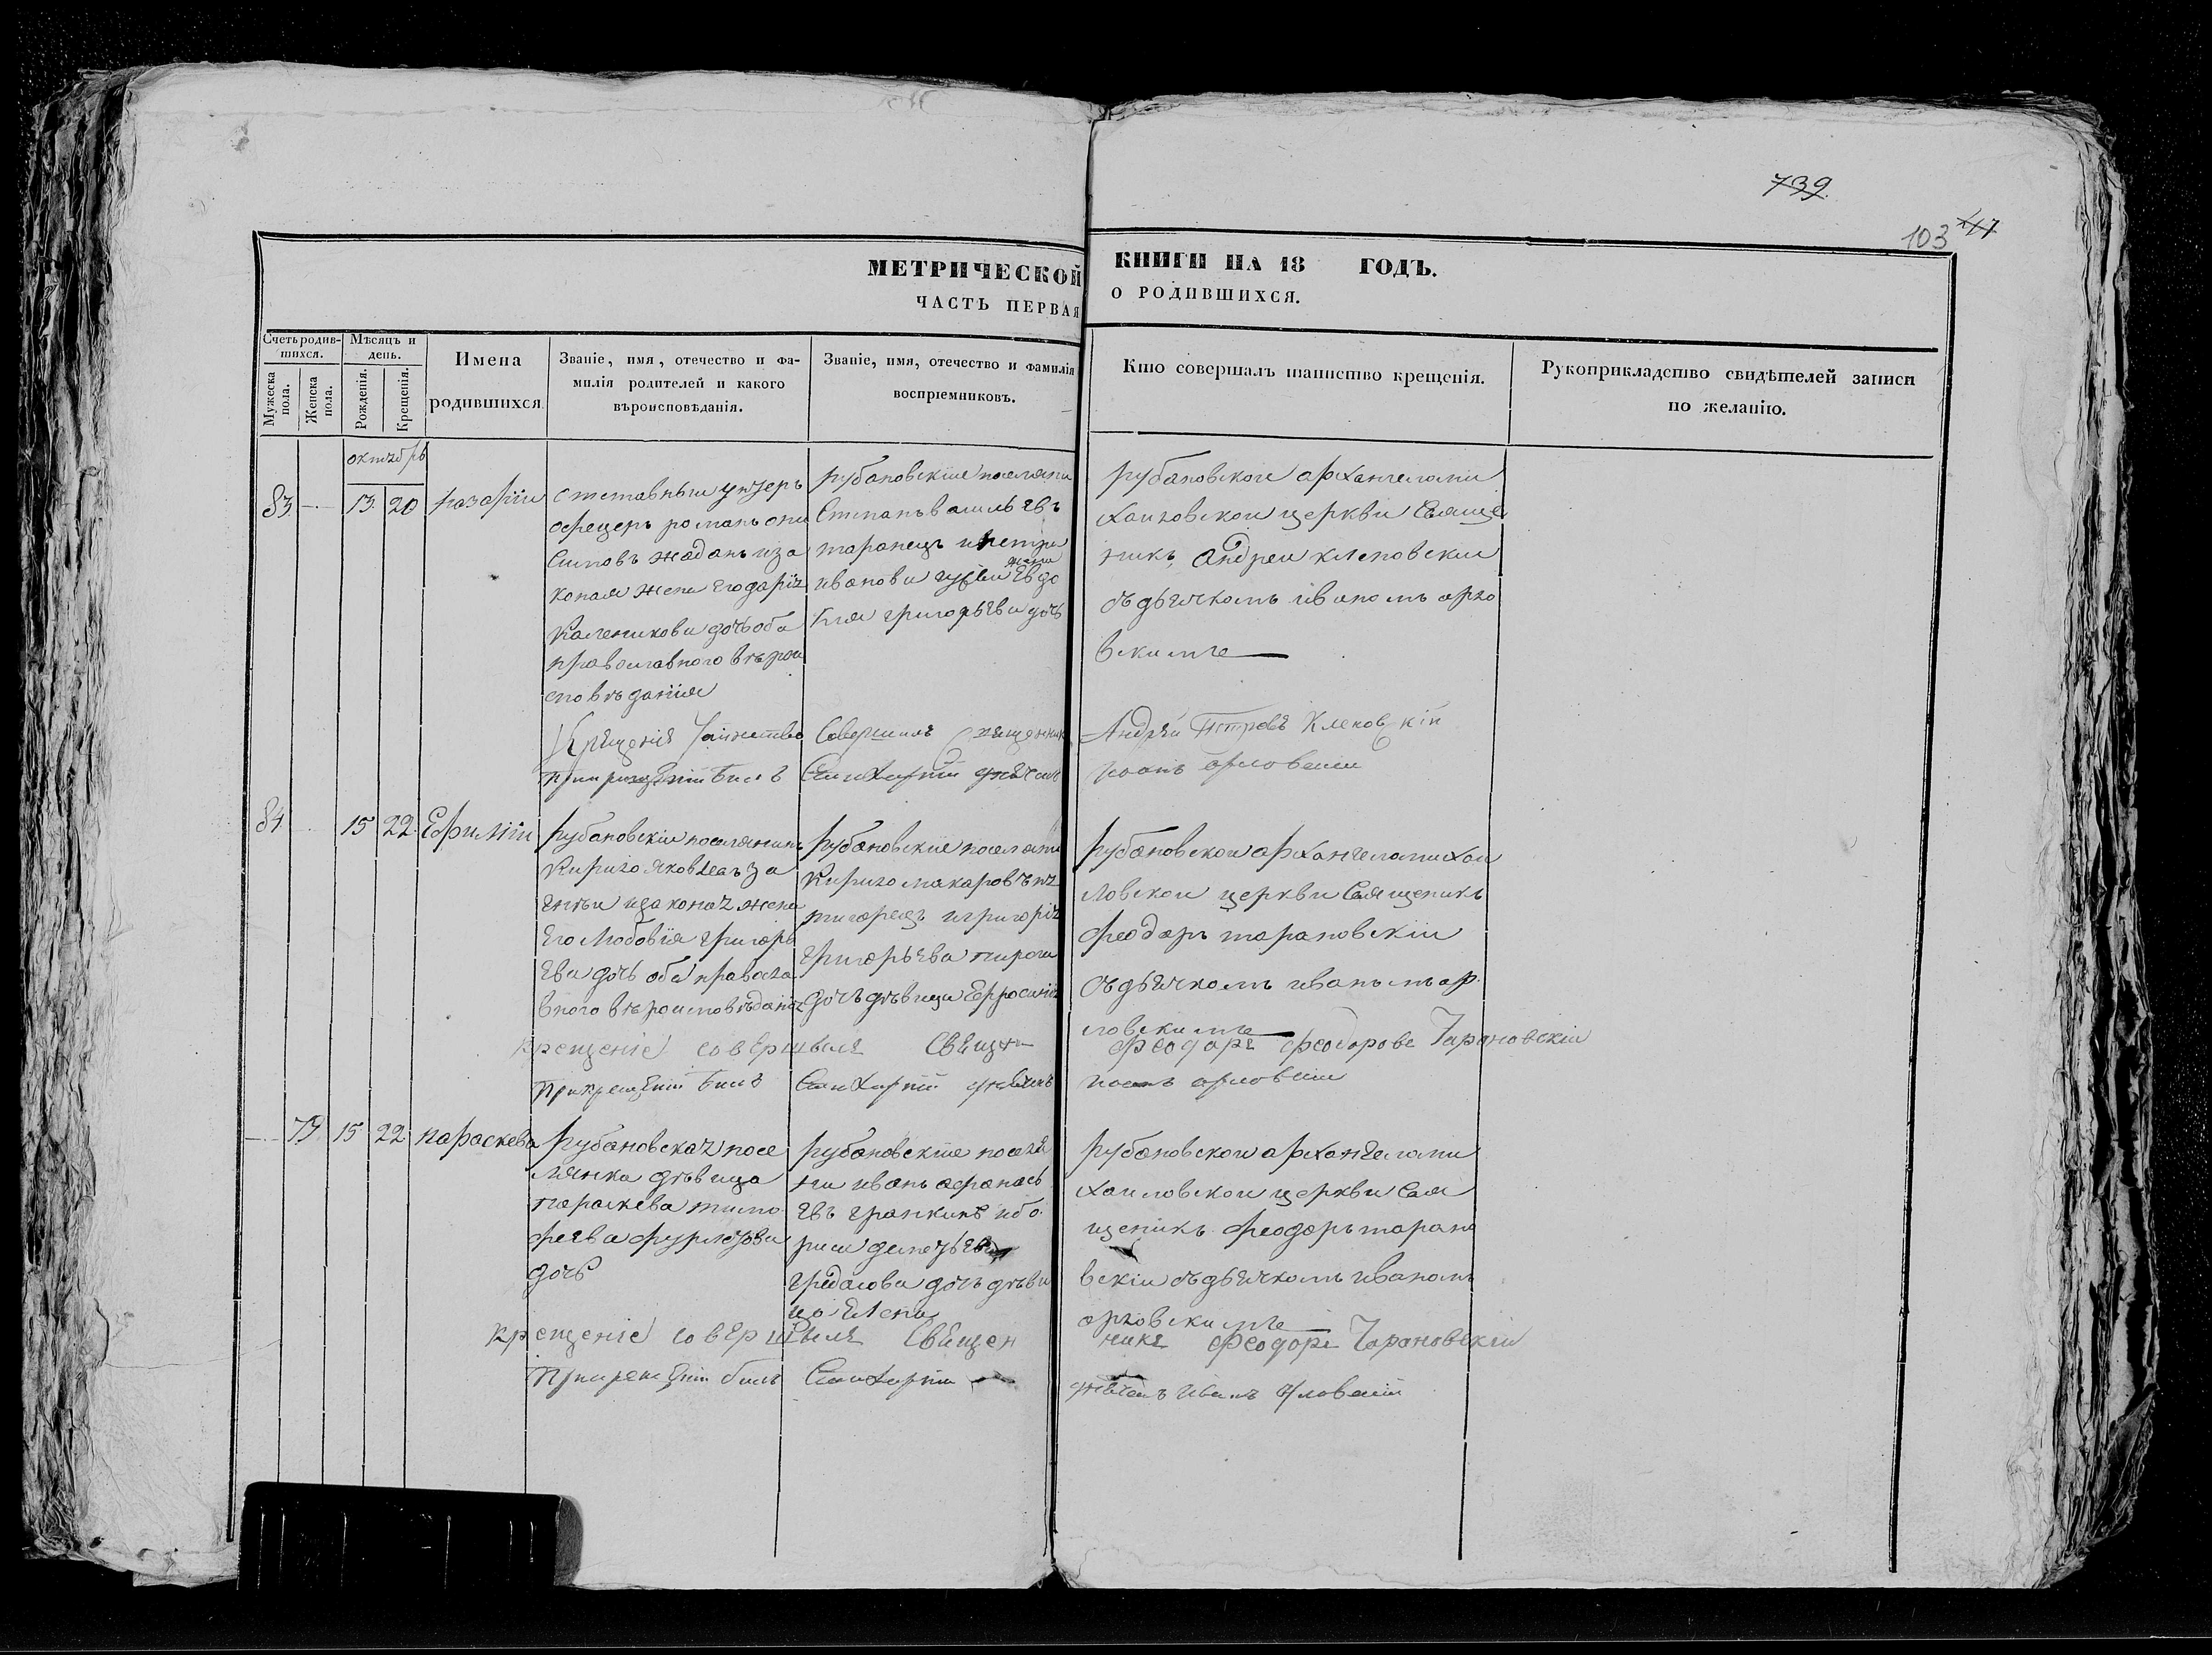 739
103
МЕТРИЧЕСКОЙ КНИГИ НА 18 ГОДЪ.
ЧАСТЬ ПЕРВАЯ О РОДИВШИХСЯ.
Счетъ родив-
шихся.
Мужеска
пола.
Женска
пола.
Мѣсяцъ и
день.
Рожденія.
Крещенія.
Имена
родившихся
Званіе, имя, отечество и фа-
милія родителей и какого
вѣроисповѣданія.
Званіе, имя, отечество и фамилія
воспріемниковъ.
Кто совершалъ таинство крещенія.
Рукоприкладство свидѣтелей записи
по желанію.
октябрь
83 13 20 назарій
отставныи унтеръ
офецеръ романъ они
симовъ жаданъ иза
коная жена его дарія
каленикова дочь оба
православного вѣрои
сповѣданія
рубановскіие поселяни
Степанъ василь евъ
таранецъ и петри
иванови жени Евдо
кия григорьева дочь
рубановскои архангеломи
хаиловскои церкви Свяще
никъ андреи клеповскии
съ дьячкомъ иваномъ орло
вскимъ
Крещеніе Таинство Совершилъ Священник Андрей Петровъ Клеповскій
при крещеніи билъ дьячекъ иоанъ орловскии
84 15 22 Ефимии
рубановскии поселянинъ
Кирило яковлевъ за
иза коная жена
Его Любовія григорь
ева дочь оба правосла
вного вѣроисповѣданія
рубановские поселяни
Кирило макаровъ
григорія
григорьева пирога
дочь дѣвица Ефросинія
рубановскои архангеломихаи
ловскои церкви Священикъ
феодоръ тарановскіи
съ дьячкомъ иваномъ ор
ловскимъ
крещеніе совершилъ Свещен феодоръ феодоровъ Тарановскіи
при крещеніи билъ дьячекъ иоанъ орловскии
79 15 22 параскева
рубановская посе
лянка дѣвица
параскева тимо
феева
дочь
рубановскіие поселя
ни иванъ афанась
евъ гранкинъ и бо
риса
дочь дѣви
ца Елена
рубановскои архангеломи
хаиловскои церкви Свя
щеникъ феодоръ тарано
вскіи съ дьячкомъ иваномъ
орловскимъ
крещеніе совершилъ Свещен никъ феодоръ Тарановскіи
при крещеніи билъ дьячекъ иванъ орловскій